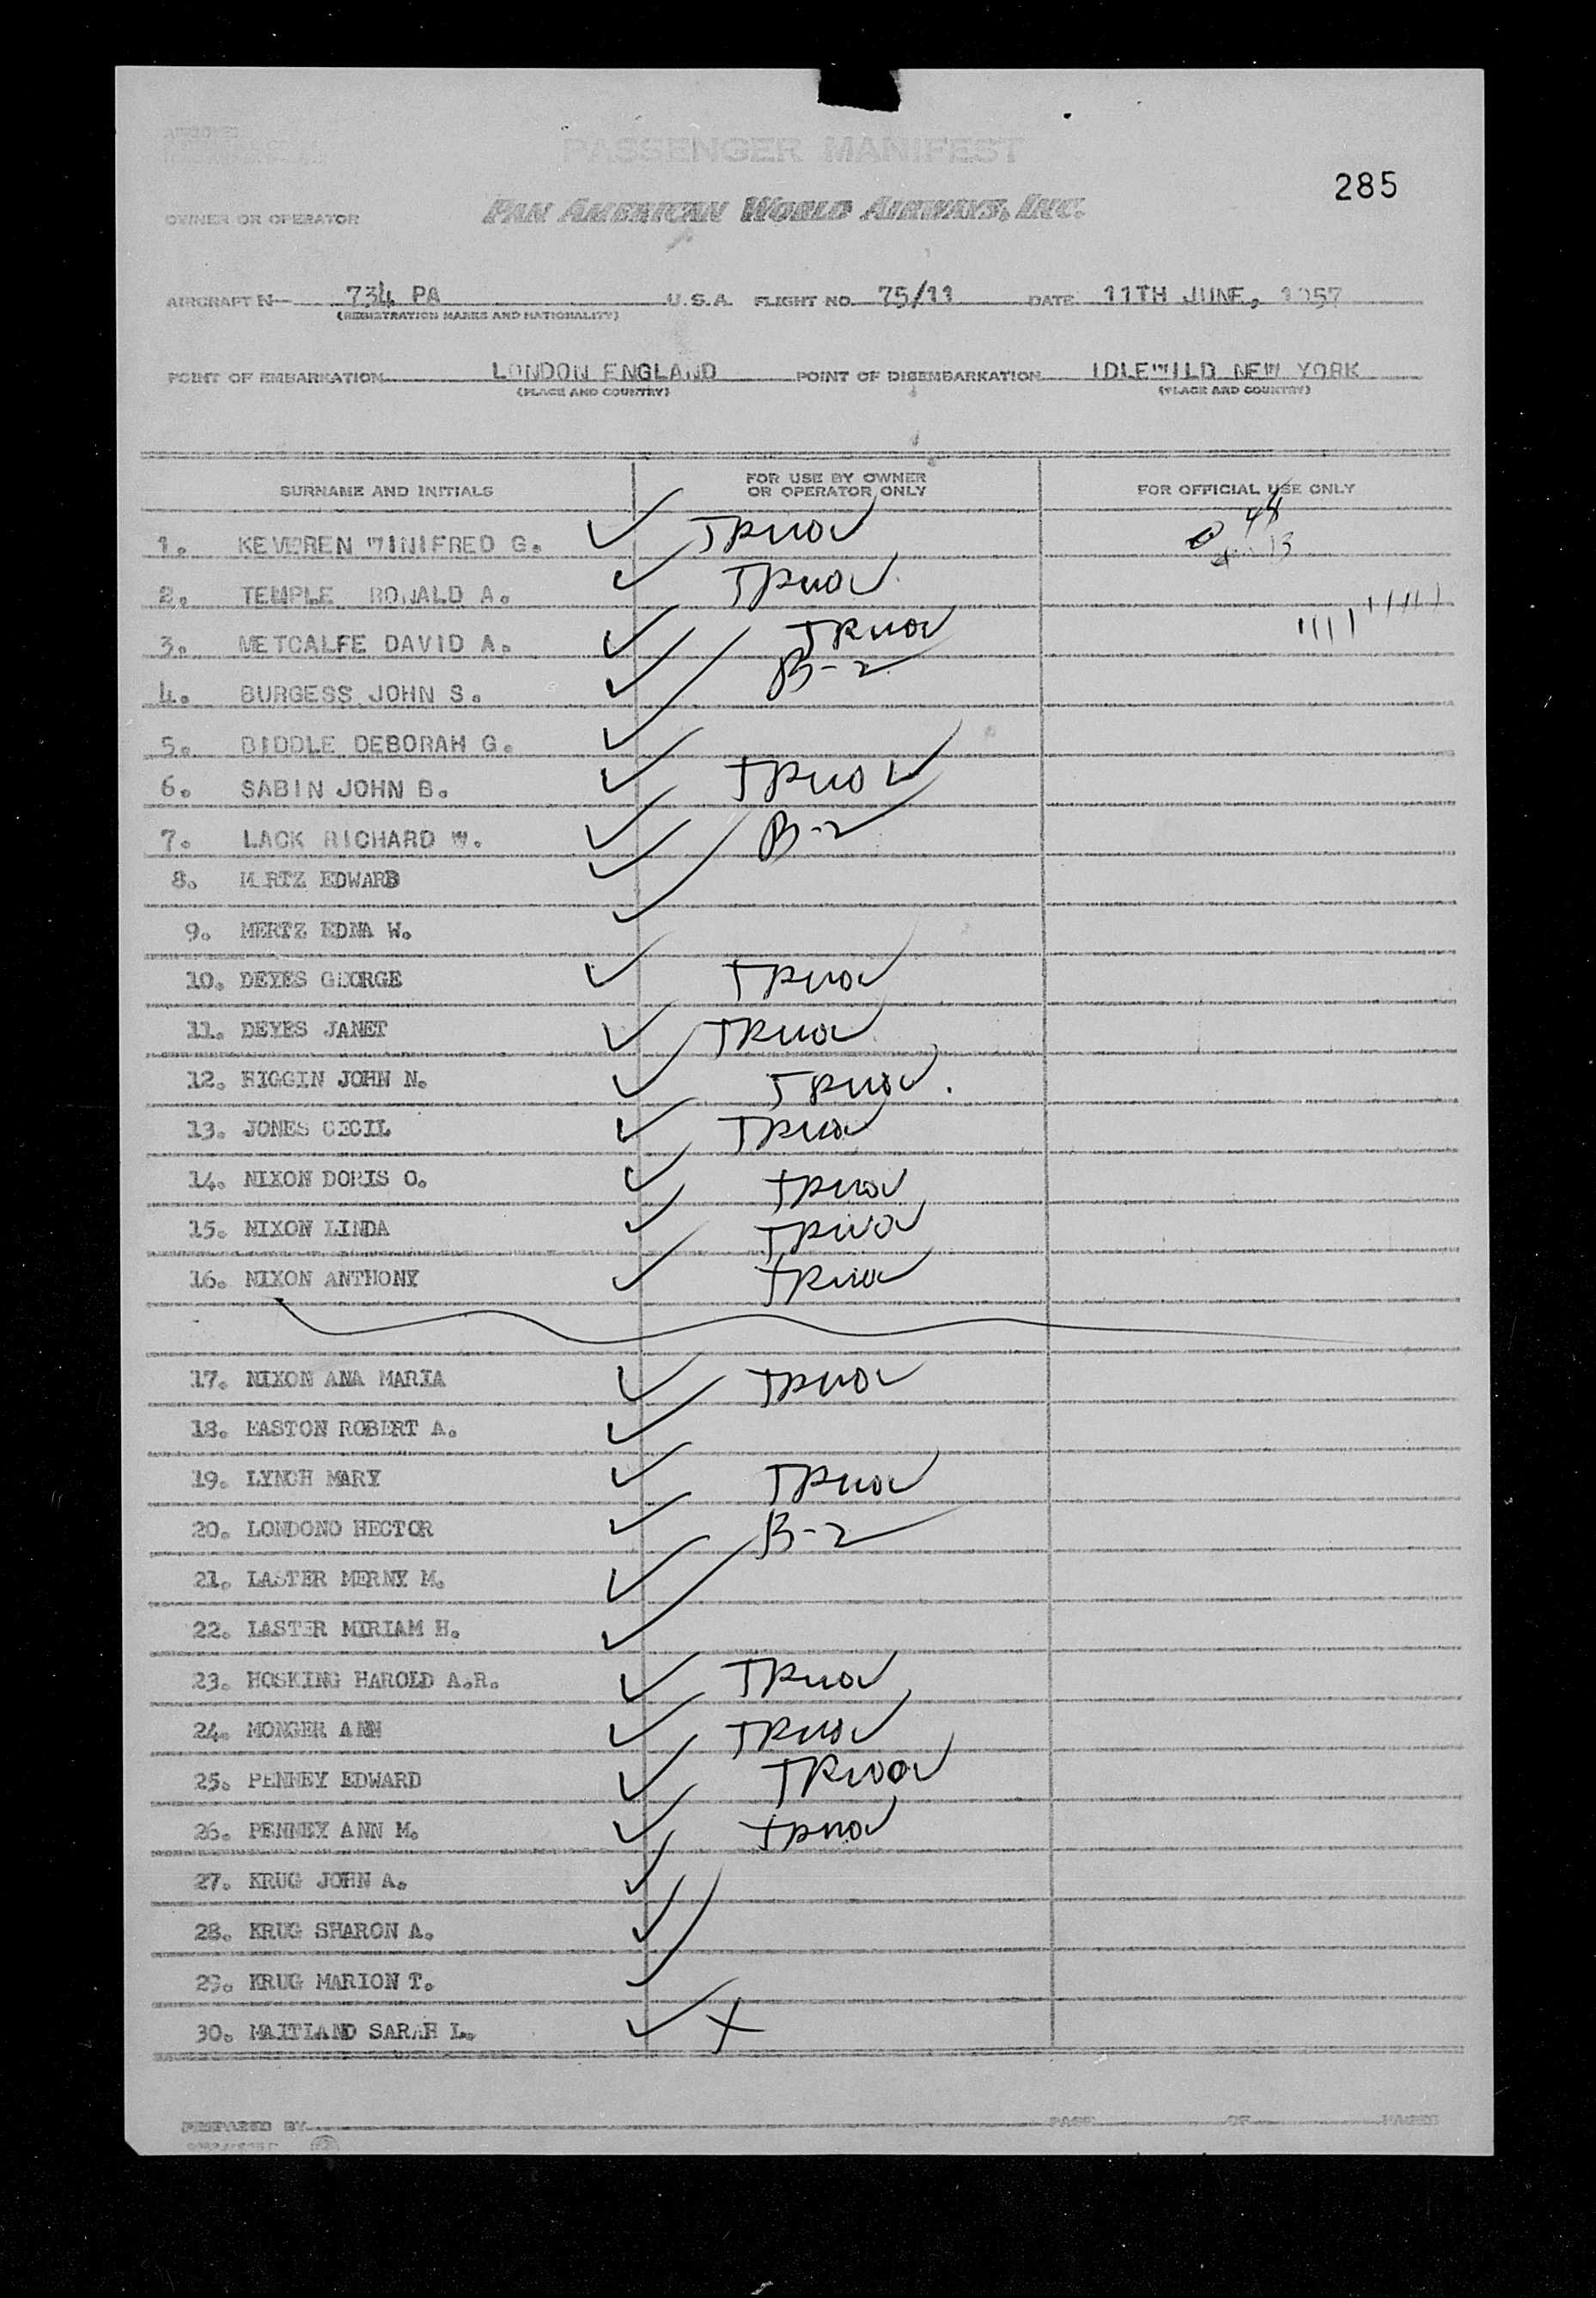 PASSENGER MANIFEST
285
OWNER OR OPERATOR PAN AMERICAN WORLD AIRWAYS, INC.
AIRCRAFT N 734 PA U.S.A. FLIGHT NO. 75/11 DATE 11TH JUNE, 1957
(REGISTRATION MARKS AND NATIONALITY)
POINT OF EMBARKATION LONDON ENGLAND POINT OF DISEMBARKATION IDLEWILD NEW YORK
(PLACE AND COUNTRY) (PLACE AND COUNTRY)
SURNAME AND INITIALS FOR USE BY OWNER OR OPERATOR ONLY FOR OFFICIAL USE ONLY
1. KEVEREN WINIFRED G. ✓
2. TEMPLE RONALD A. ✓
3. METCALFE DAVID A. ✓
4. BURGESS JOHN S. ✓ B-2
5. BIDDLE DEBORAH G. ✓
6. SABIN JOHN B. ✓
7. LACK RICHARD W. ✓ B-2
8. MERTZ EDWARD ✓
9. MERTZ EDNA W. ✓
10. DEYES GEORGE ✓
11. DEYES JANET ✓
12. HIGGIN JOHN N. ✓
13. JONES CECIL ✓
14. NIXON DORIS O. ✓
15. NIXON LINDA ✓
16. NIXON ANTHONY ✓
17. NIXON ANA MARIA ✓
18. EASTON ROBERT A. ✓
19. LYNCH MARY ✓
20. LONDONO HECTOR ✓ B-2
21. LASTER MERNY M. ✓
22. LASTER MIRIAM H. ✓
23. HOSKING HAROLD A.R. ✓
24. MONGER ANN ✓
25. PENNEY EDWARD ✓
26. PENNEY ANN M. ✓
27. KRUG JOHN A. ✓
28. KRUG SHARON A. ✓
29. KRUG MARION T. ✓
30. MAITLAND SARAH L. ✓ X
PREPARED BY PAGE OF PAGES